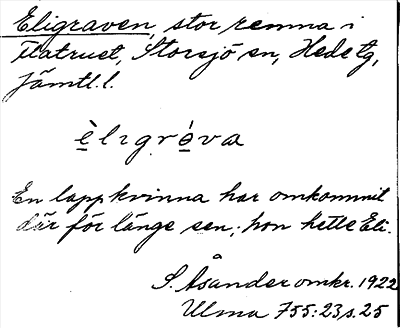 Eligraven, stor remna i
Flatruet, Storsjö sn, Hede tg,
Jämtl. l.
è l ı g r ó v a
En lappkvinna har omkommit
där för länge sen; hon hette Eli.
S. Åsander omkr. 1922
Ulma 755:23 s. 25